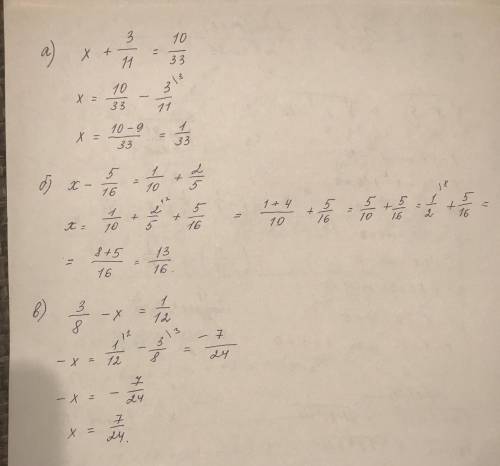 а) x + 3/11 = 10/33
x = 10/33 - 3\3/11
x = 10-9/33 = 1/33
б) x - 5/16 = 1/10 + 2/5
x = 1/10 + 2\2/5 + 5/16 = 1+4/10 + 5/16 = 5/10 + 5/16 = 1\8/2 + 5/16 =
= 8+5/16 = 13/16.
в) 3/8 - x = 1/12
-x = 1\2/12 - 3\3/8 = -7/24
-x = - 7/24
x = 7/24.